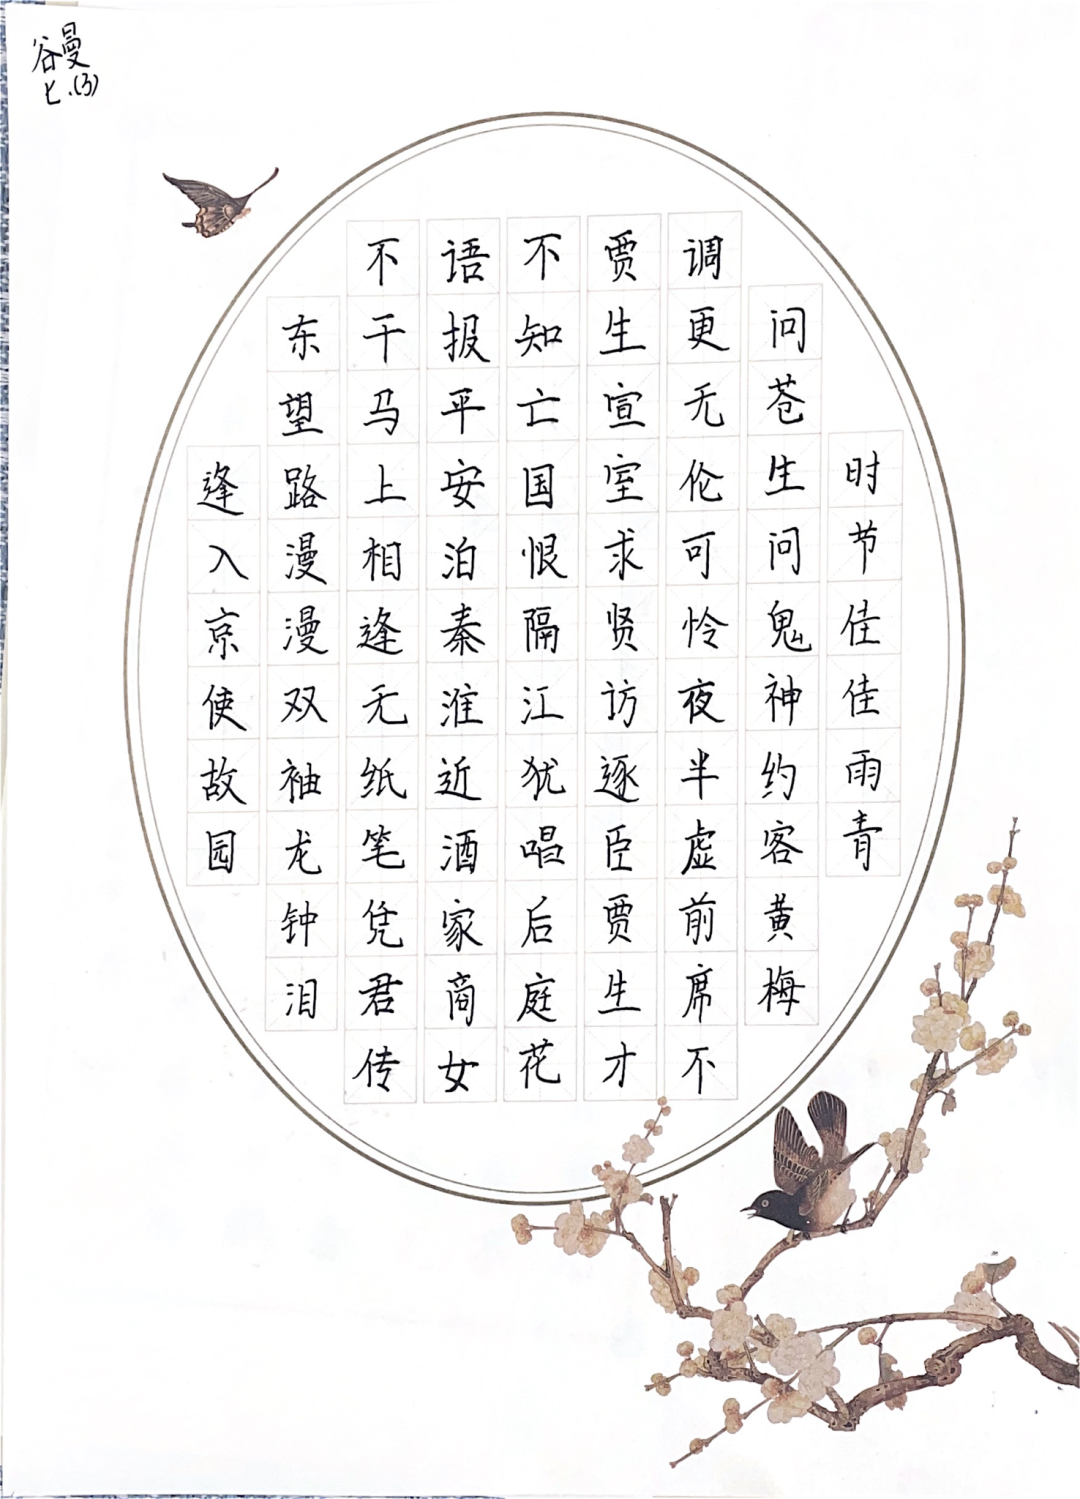 谷曼
七.(3)
逢入京使故园
东望路漫漫双袖龙钟泪
不干马上相逢无纸笔凭君传
语报平安泊秦淮近酒家商女
不知亡国恨隔江犹唱后庭花
贾生宣室求贤访逐臣贾生才
调更无伦可怜夜半虚前席不
问苍生问鬼神约客黄梅
时节佳佳雨青